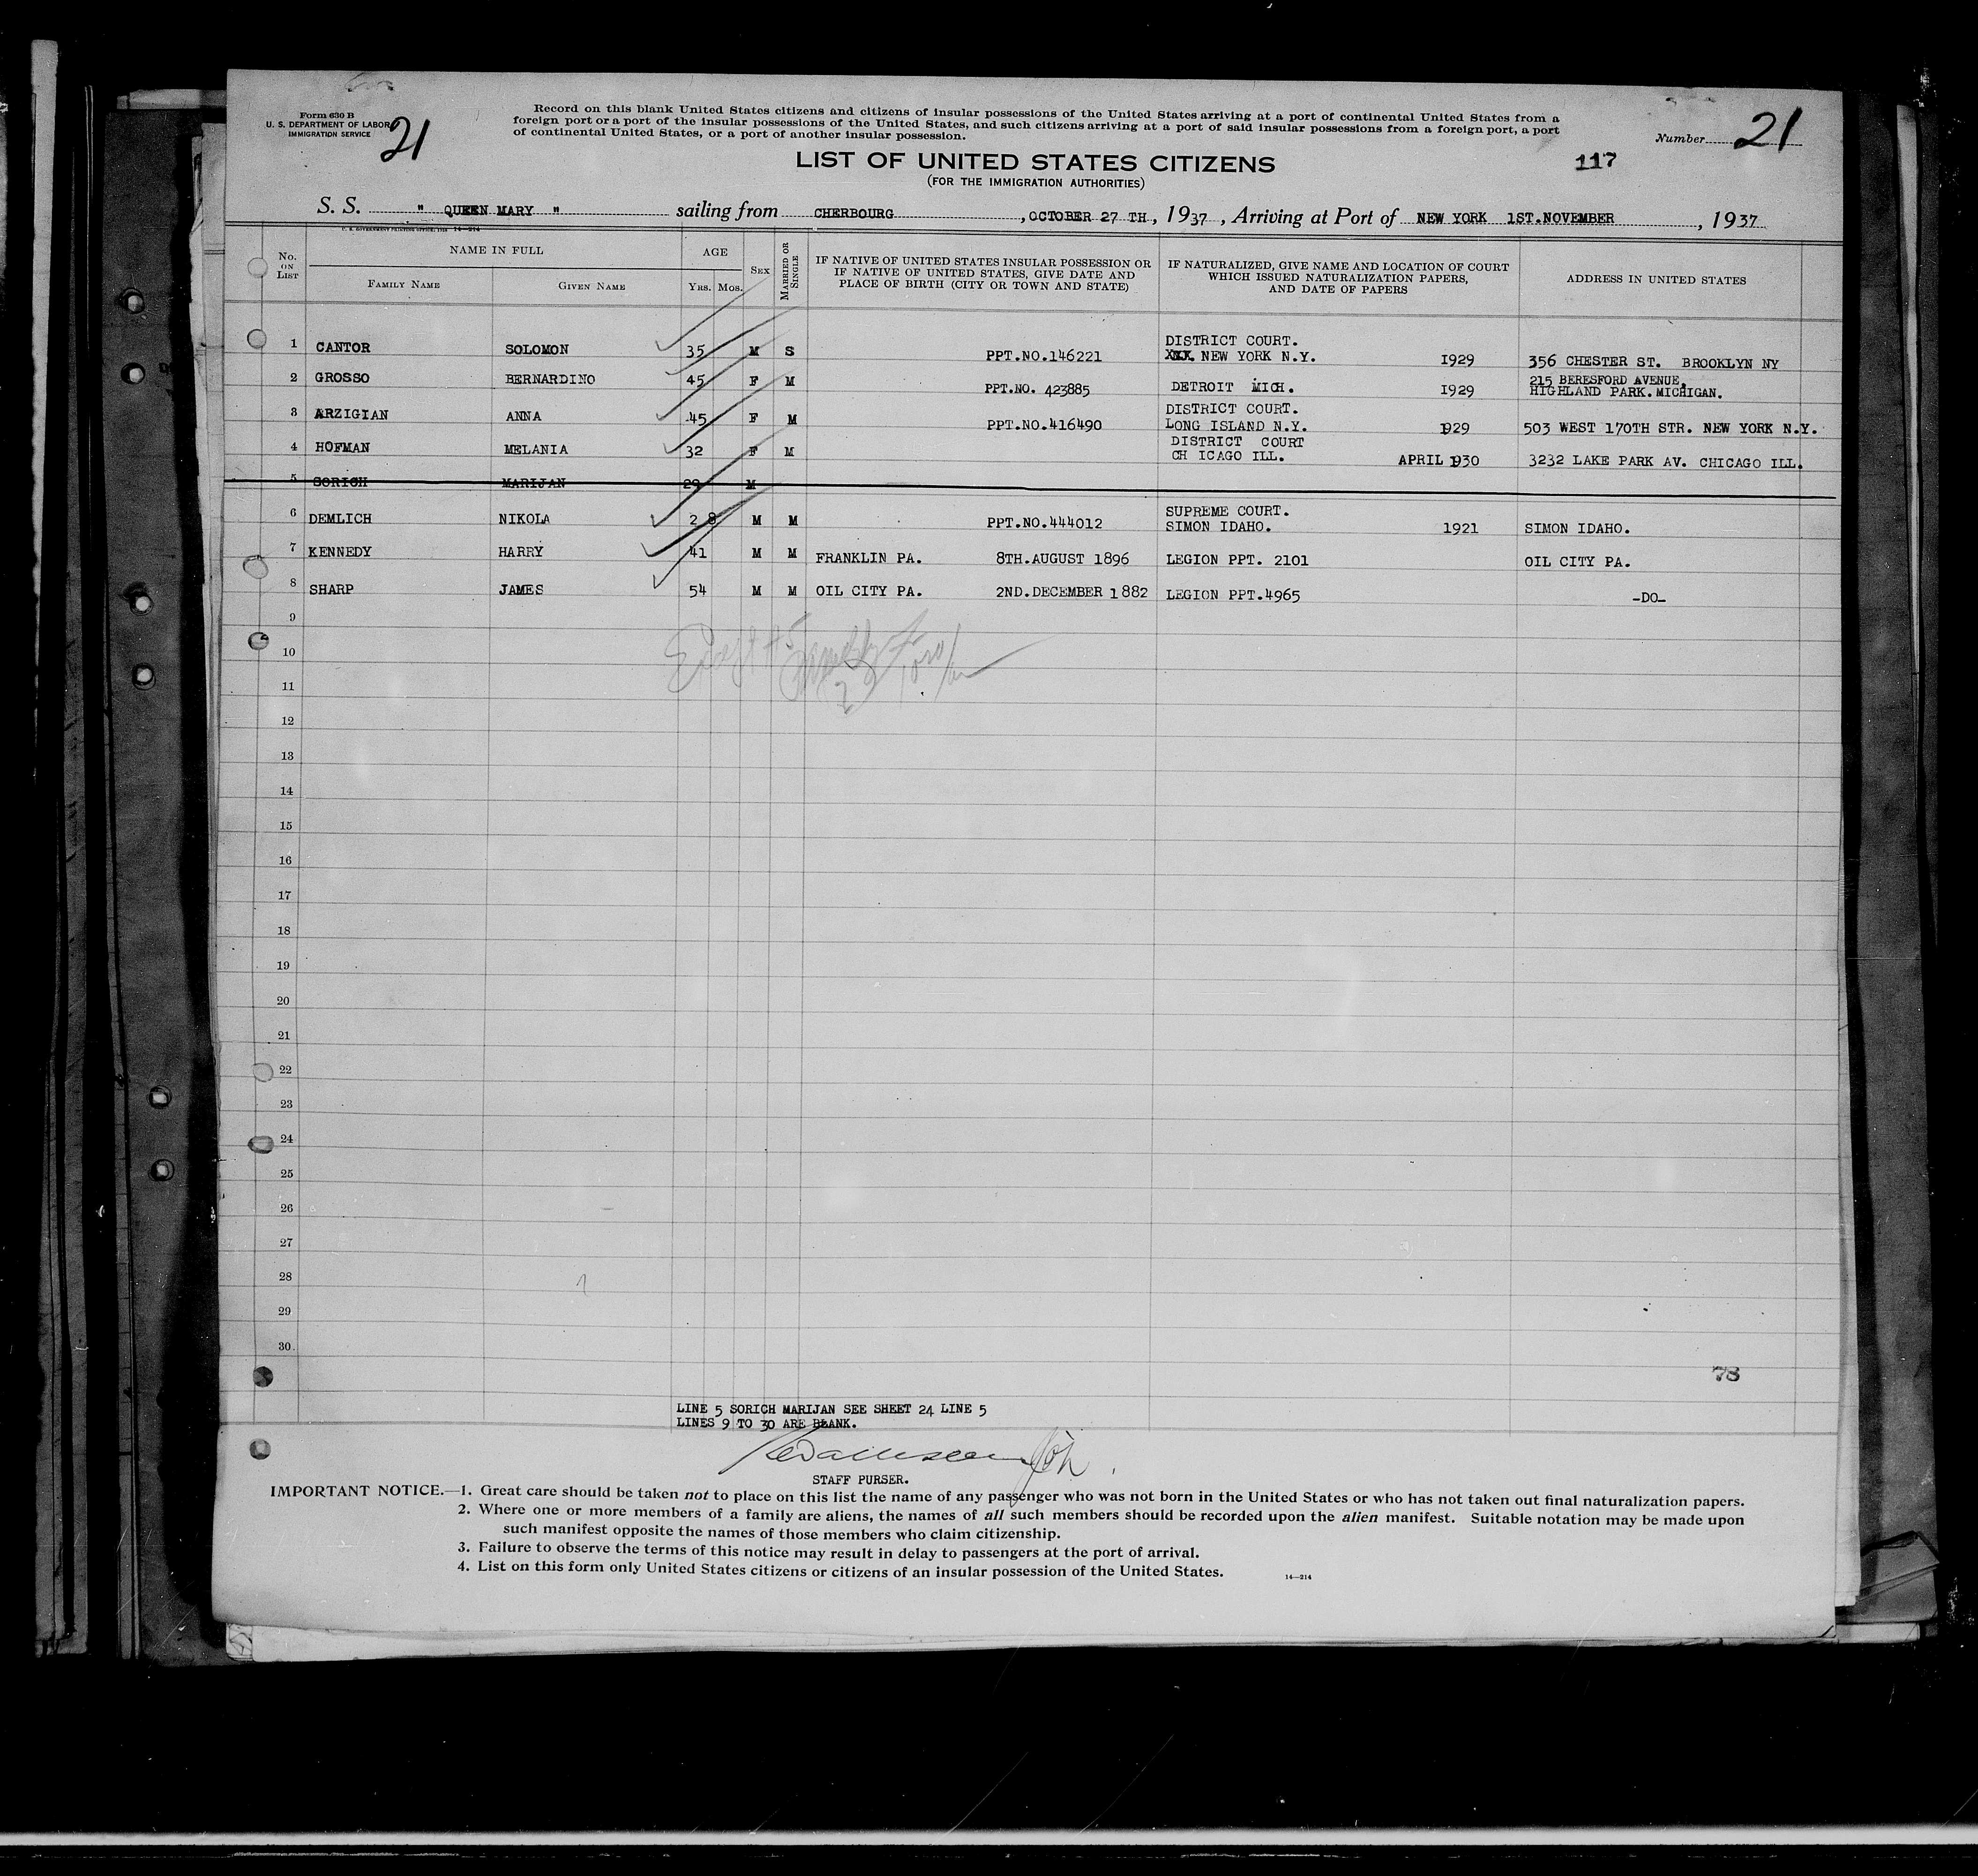 Form 630 B
U. S. DEPARTMENT OF LABOR
IMMIGRATION SERVICE
21
Record on this blank United States citizens and citizens of insular possessions of the United States arriving at a port of continental United States from a
foreign port or a port of the insular possessions of the United States, and such citizens arriving at a port of said insular possessions from a foreign port, a port
of continental United States, or a port of another insular possession.
Number 21
LIST OF UNITED STATES CITIZENS
117
(FOR THE IMMIGRATION AUTHORITIES)
S. S. " QUEEN MARY " sailing from CHERBOURG , OCTOBER 27 TH , 1937 , Arriving at Port of NEW YORK 1ST.NOVEMBER , 1937
14—214
No. ON LIST
NAME IN FULL
FAMILY NAME
GIVEN NAME
AGE
YRS. MOS.
SEX
MARRIED OR SINGLE
IF NATIVE OF UNITED STATES INSULAR POSSESSION OR
IF NATIVE OF UNITED STATES, GIVE DATE AND
PLACE OF BIRTH (CITY OR TOWN AND STATE)
IF NATURALIZED, GIVE NAME AND LOCATION OF COURT
WHICH ISSUED NATURALIZATION PAPERS,
AND DATE OF PAPERS
ADDRESS IN UNITED STATES
DISTRICT COURT.
1 CANTOR SOLOMON 35 M S PPT.NO.146221 XXX. NEW YORK N.Y. 1929 356 CHESTER ST. BROOKLYN NY
215 BERESFORD AVENUE,
2 GROSSO BERNARDINO 45 F M PPT.NO. 423885 DETROIT MICH. 1929 HIGHLAND PARK. MICHIGAN.
DISTRICT COURT.
3 ARZIGIAN ANNA 45 F M PPT.NO.416490 LONG ISLAND N.Y. 1929 503 WEST 170TH STR. NEW YORK N.Y.
DISTRICT COURT
4 HOFMAN MELANIA 32 F M CH ICAGO ILL. APRIL 1930 3232 LAKE PARK AV. CHICAGO ILL.
5 SORICH MARIJAN 29 M
SUPREME COURT.
6 DEMLICH NIKOLA 2 8 M M PPT.NO.444012 SIMON IDAHO. 1921 SIMON IDAHO.
7 KENNEDY HARRY 41 M M FRANKLIN PA. 8TH.AUGUST 1896 LEGION PPT. 2101 OIL CITY PA.
8 SHARP JAMES 54 M M OIL CITY PA. 2ND.DECEMBER 1882 LEGION PPT.4965 -DO-
9
10
11
12
13
14
15
16
17
18
19
20
21
22
23
24
25
26
27
28
29
30
78
LINE 5 SORICH MARIJAN SEE SHEET 24 LINE 5
LINES 9 TO 30 ARE BLANK.
STAFF PURSER.
IMPORTANT NOTICE.—1. Great care should be taken not to place on this list the name of any passenger who was not born in the United States or who has not taken out final naturalization papers.
2. Where one or more members of a family are aliens, the names of all such members should be recorded upon the alien manifest. Suitable notation may be made upon
such manifest opposite the names of those members who claim citizenship.
3. Failure to observe the terms of this notice may result in delay to passengers at the port of arrival.
4. List on this form only United States citizens or citizens of an insular possession of the United States.
14—214